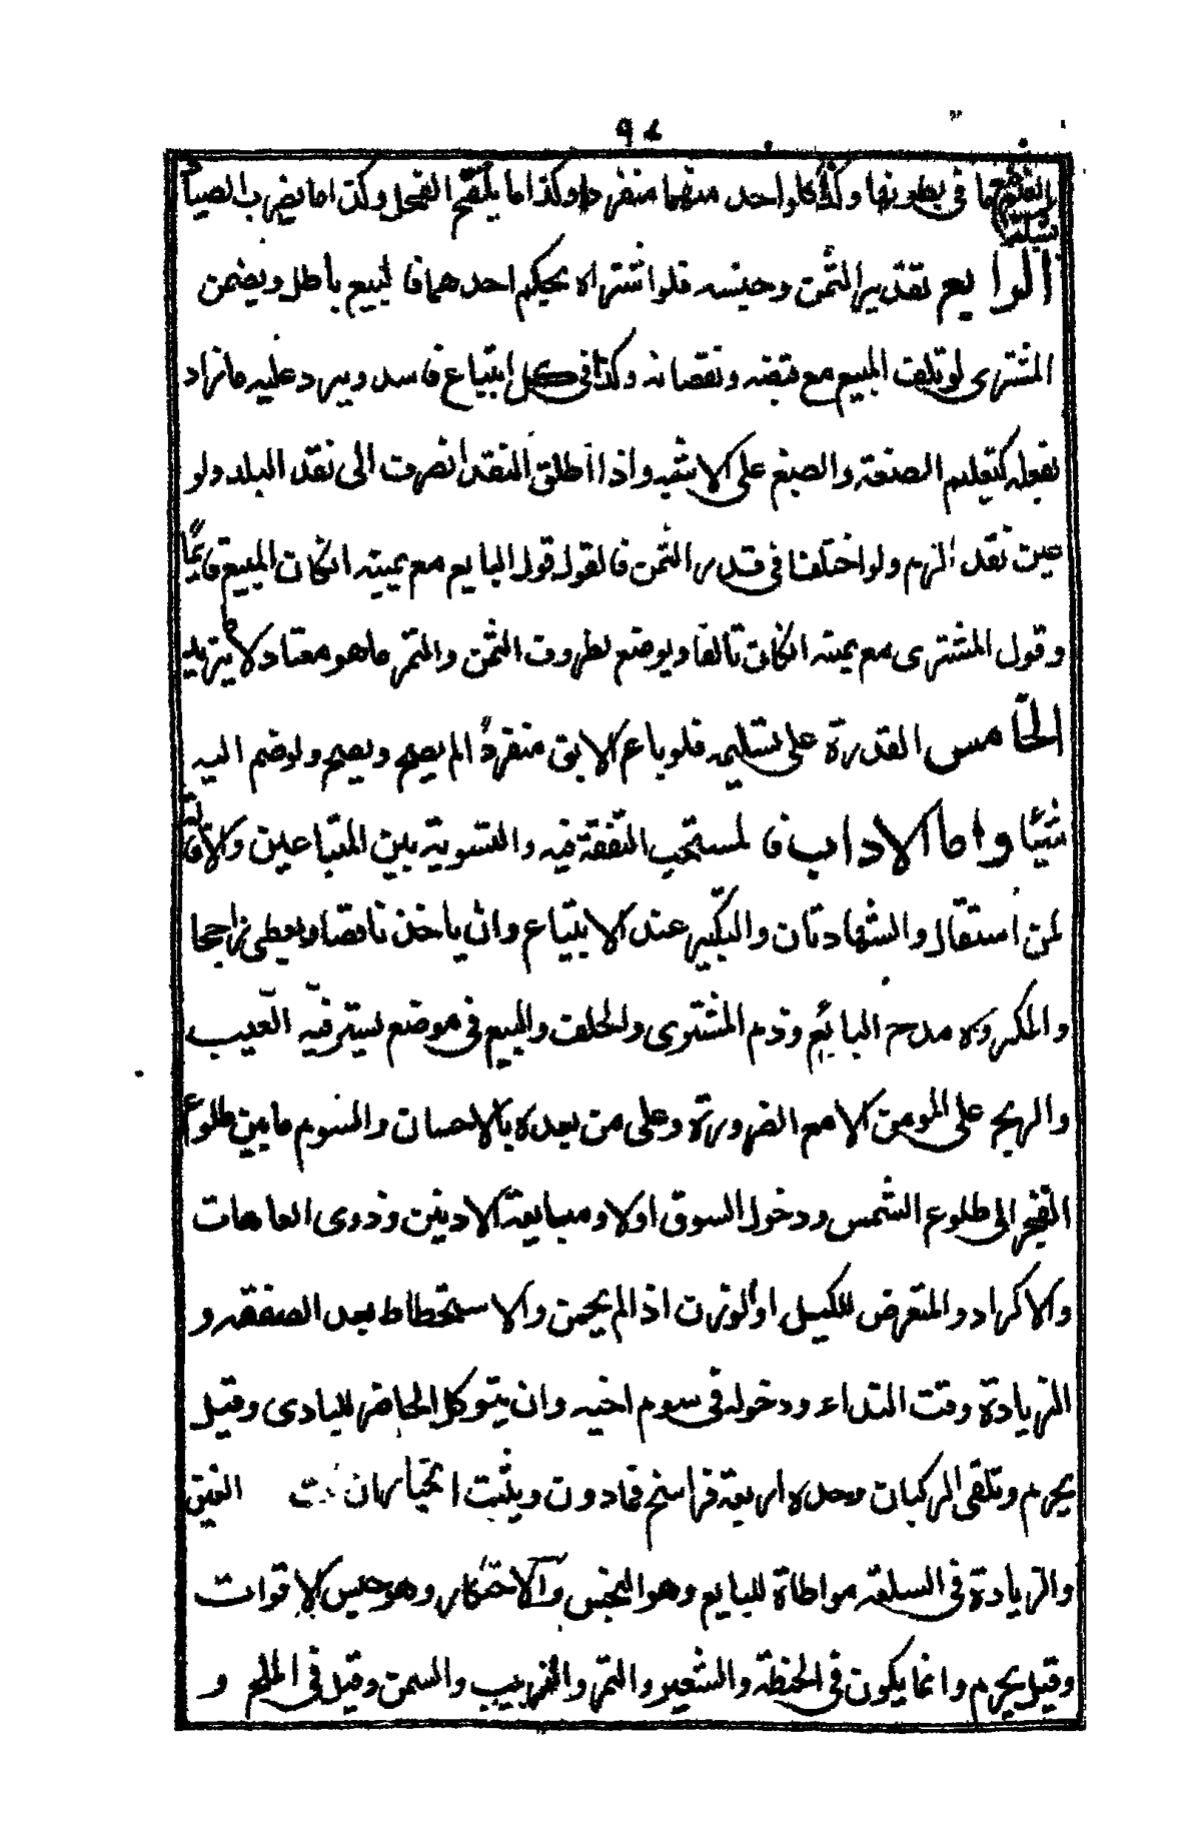 ٩٤
ما فى بطونها وكذا كلواحد منهما منفردا وكذا ما يلقح الفحل وكذا ما يضرب الصياد
بشبكته
الرابع تقدير الثمن وجنسه فلو اشتراه بحكم احدهما فالبيع باطل ويضمن
المشترى لو تلف المبيع مع قبضه ونقصانه وكذا فى كل ابتياع فاسد ويرد عليه ما زاد
بفعله كتعليم الصنعة والصبغ على الاشبه واذا اطلق النقد انصرف الى نقد البلد ولو
عين نقد الزم ولو اختلفا فى قدر الثمن فالقول قول البايع مع يمينه انكان المبيع قايما
وقول المشترى مع يمينه انكان تالفا ويوضع لظروف الثمن والتمر ما هو معتاد لا يزيد
الخامس القدرة على تسليمه فلو باع الابق منفردا لم يصح ويصح ولو ضم اليه
شيئا واما الاداب فالمستحب التفقه فيه والتسوية بين المتباعين والاقالة
لمن استقال والشهادتان والتكبير عند الابتياع وان ياخذ ناقصا ويعطى راجحا
والمكروه مدح البائع وذم المشترى والحلف والبيع فى موضع يستر فيه العيب
والربح على المومن الا مع الضرورة وعلى من يعده بالاحسان والسوم ما بين طلوع
الفجر الى طلوع الشمس ودخول السوق اولا ومبايعة الادنين وذوى العاهات
والاكراد والتعرض للكيل او الوزن اذا لم يحسن والاستحطاط بعد الصفقه و
الزيادة وقت النداء ودخوله فى سوم اخيه وان يتوكل الحاضر للبادى وقيل
يحرم وتلقى الركبان وحده اربعة فراسخ فما دون ويثبت الخيار ان الغبن
والزيادة فى السلعة مواطاة للبايع وهو النجش والاحتكار وهو حبس الاقوات
وقيل يحرم وانما يكون فى الحنطة والشعير والتمر والزبيب والسمن وقيل فى الملح و